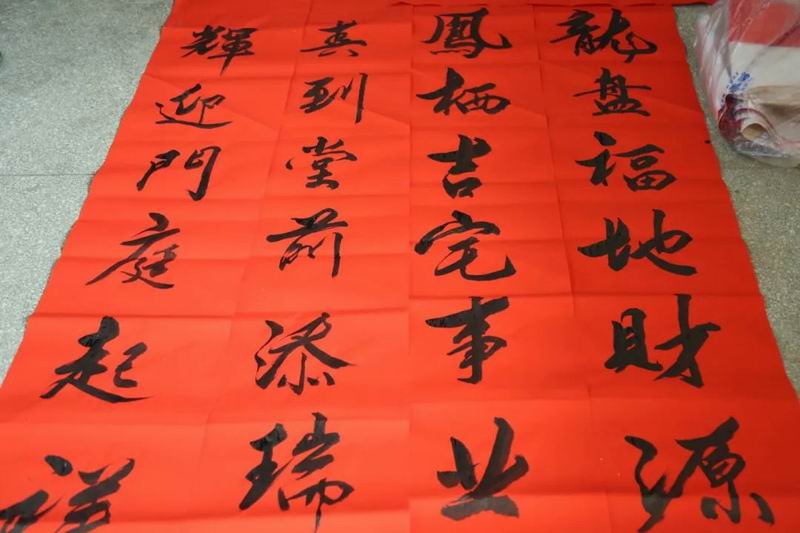 龍盘福地財源
鳳栖吉宅事业
喜到堂前添瑞
輝迎門庭起祥